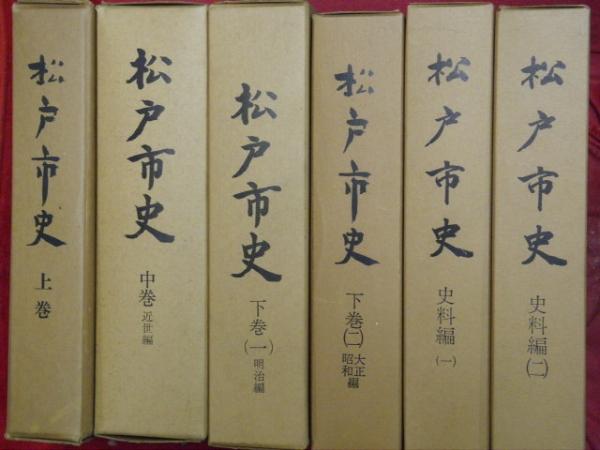 松戸市史
上巻
松戸市史
中巻 近世編
松戸市史
下巻(一) 明治編
松戸市史
下巻(二) 大正昭和編
松戸市史
史料編(一)
松戸市史
史料編(二)